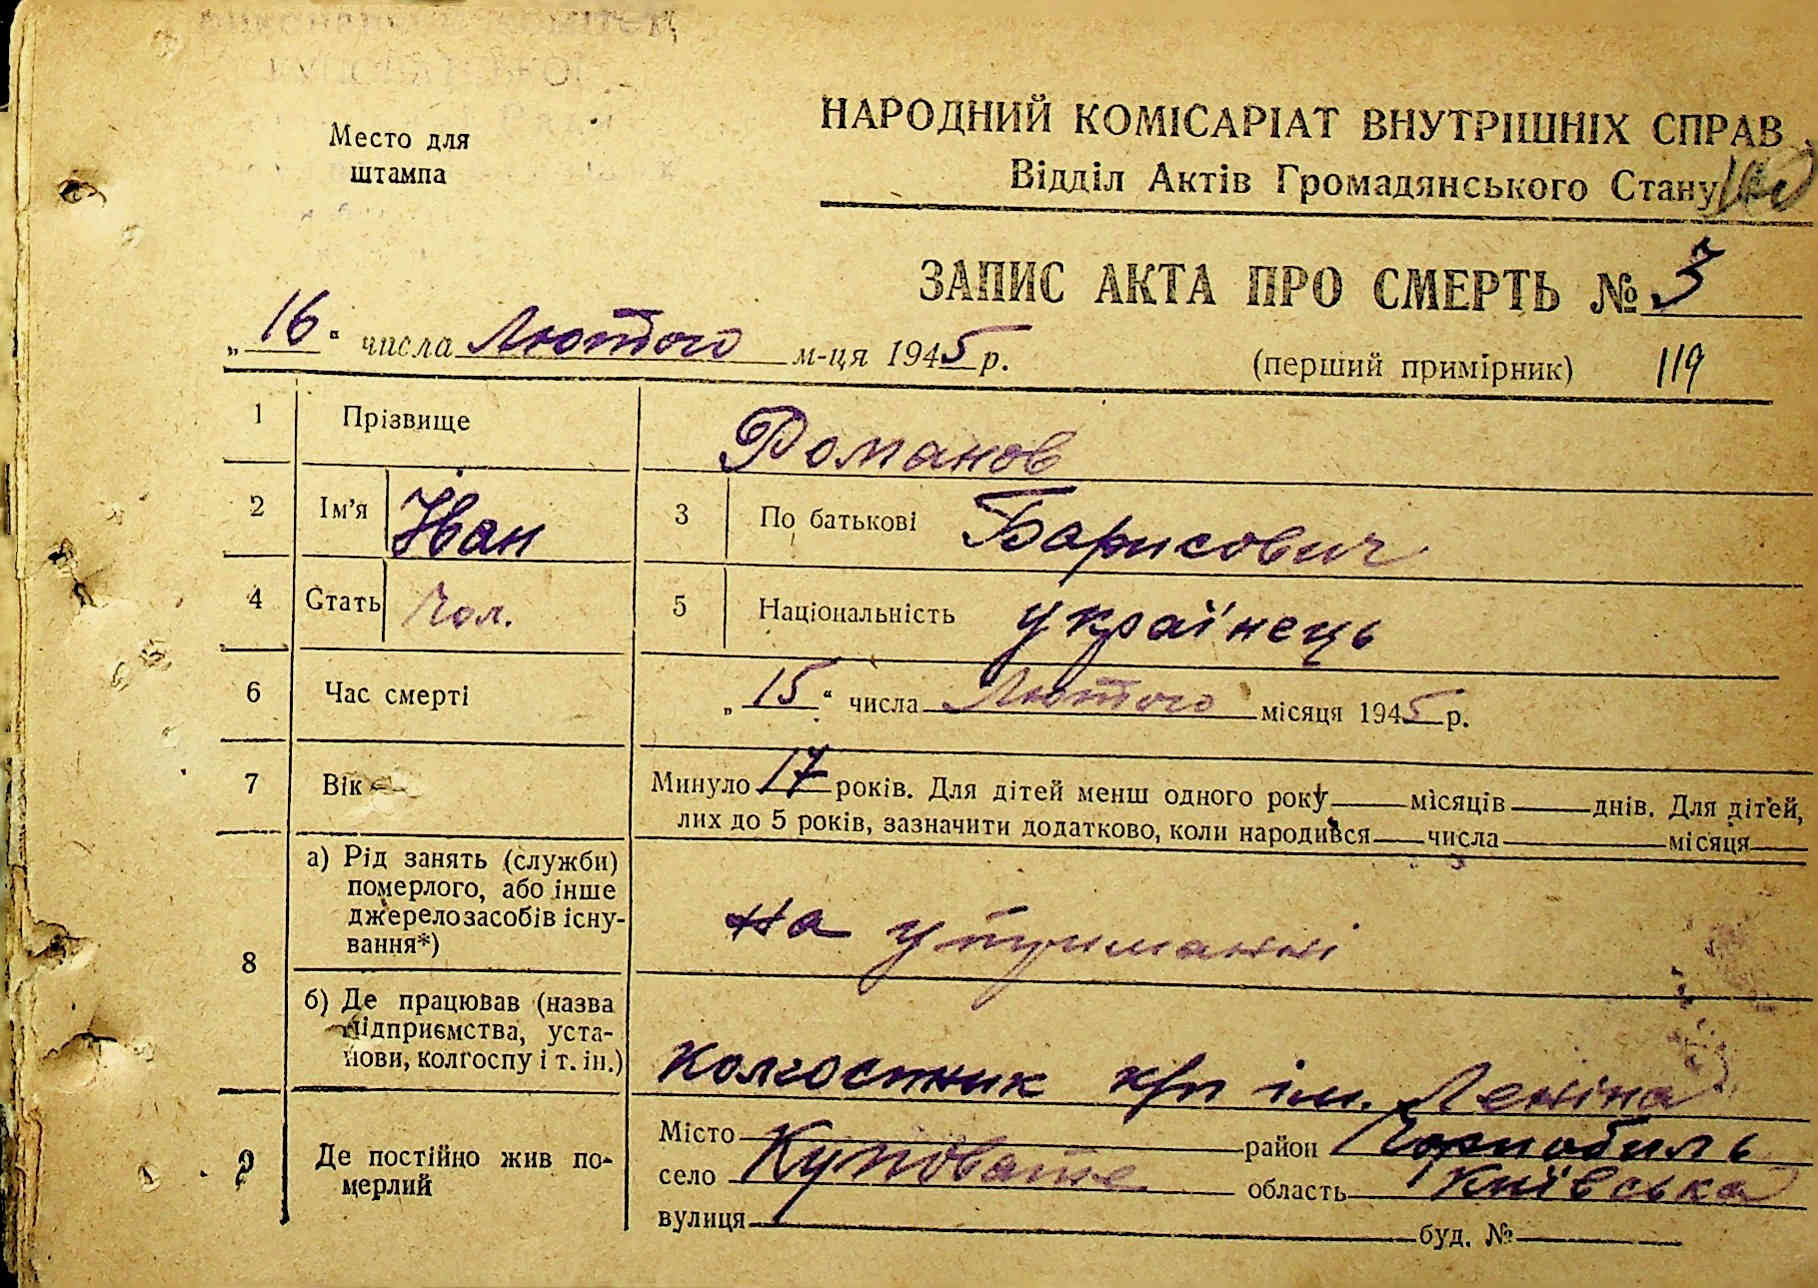 Место для
штампа
НАРОДНИЙ КОМІСАРІАТ ВНУТРІШНІХ СПРАВ
Відділ Актів Громадянського Стану
ЗАПИС АКТА ПРО СМЕРТЬ № 3
„16“ числа Лютого м-ця 1945 р.
(перший примірник) 119
1 Прізвище Романов
2 Ім’я Іван 3 По батькові Барисович
4 Стать Чол. 5 Національність українець
6 Час смерті „15“ числа Лютого місяця 1945 р.
7 Вік Минуло 17 років. Для дітей менш одного року місяців днів. Для дітей,
лих до 5 років, зазначити додатково, коли народився числа місяця
8 а) Рід занять (служби)
померлого, або інше
джерело засобів існу-
вання*)
на утриманні
б) Де працював (назва
підприємства, уста-
нови, колгоспу і т. ін.)
колгоспник к/г ім. Леніна
9 Де постійно жив по-
мерлий
Місто район Чорнобиль
село Куповате область Київська
вулиця буд. №